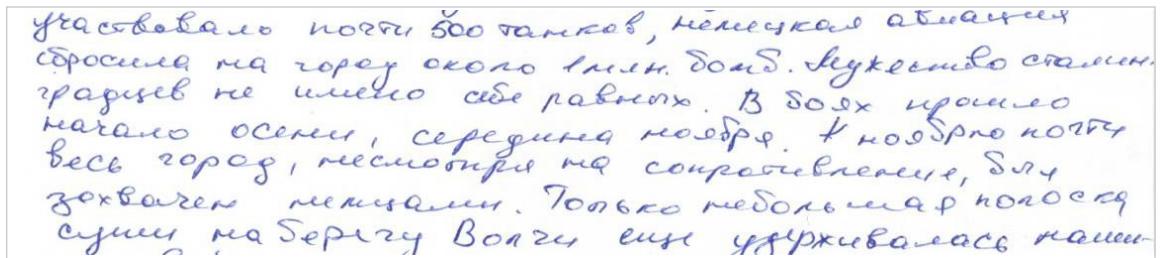 участвовало почти 500 танков, немецкая авиация
сбросила на город около 1 млн. бомб. Мужество сталин-
градцев не имело себе равных. В боях прошло
начало осени, середина ноября. К ноябрю почти
весь город, несмотря на сопротивление, был
захвачен немцами. Только небольшая полоска
суши на берегу Волги еще удерживалась наши-